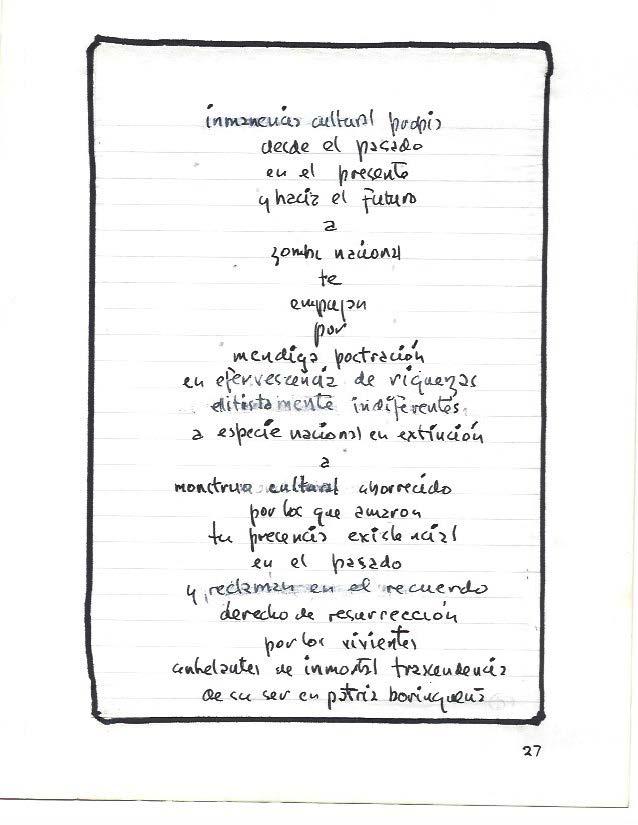 inmanencia cultural propia
desde el pasado
en el presente
y hacia el futuro
a
zombi nacional
te
empujan
por
mendiga postración
en efervescencia de riquezas
elitistamente indiferentes
a especie nacional en extinción
a
monstruo cultural aborrecido
por los que amaron
tu presencia existencial
en el pasado
y reclaman en el recuerdo
derecho de resurrección
por los vivientes
anhelantes de inmortal trascendencia
de su ser en patria borinqueña
27